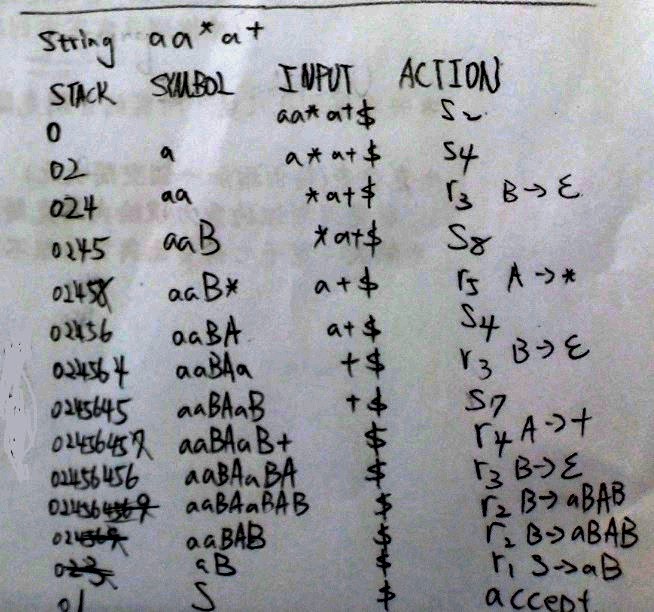 String aa*a+
STACK SYMBOL INPUT ACTION
0 aa*a+$ S2
02 a a*a+$ S4
024 aa *a+$ r3 B→ε
0245 aaB *a+$ S8
02458 aaB* a+$ r5 A→*
02456 aaBA a+$ S4
024564 aaBAa +$ r3 B→ε
0245645 aaBAaB +$ S7
02456457 aaBAaB+ $ r4 A→+
02456456 aaBAaBA $ r3 B→ε
024564569 aaBAaBAB $ r2 B→aBAB
024569 aaBAB $ r2 B→aBAB
023 aB $ r1 S→aB
01 S $ accept